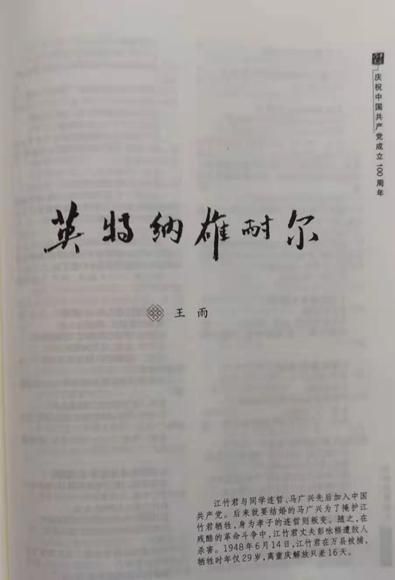 庆祝中国共产党成立100周年
英特纳雄耐尔
王雨
江竹君与同学连哲、马广兴先后加入中国
共产党。后来就要结婚的马广兴为了掩护江
竹君牺牲，身为孝子的连哲则叛变。随之，在
残酷的革命斗争中，江竹君丈夫彭咏梧遭敌人
杀害。1948年6月14日，江竹君在万县被捕，
牺牲时年仅29岁，离重庆解放只差16天。